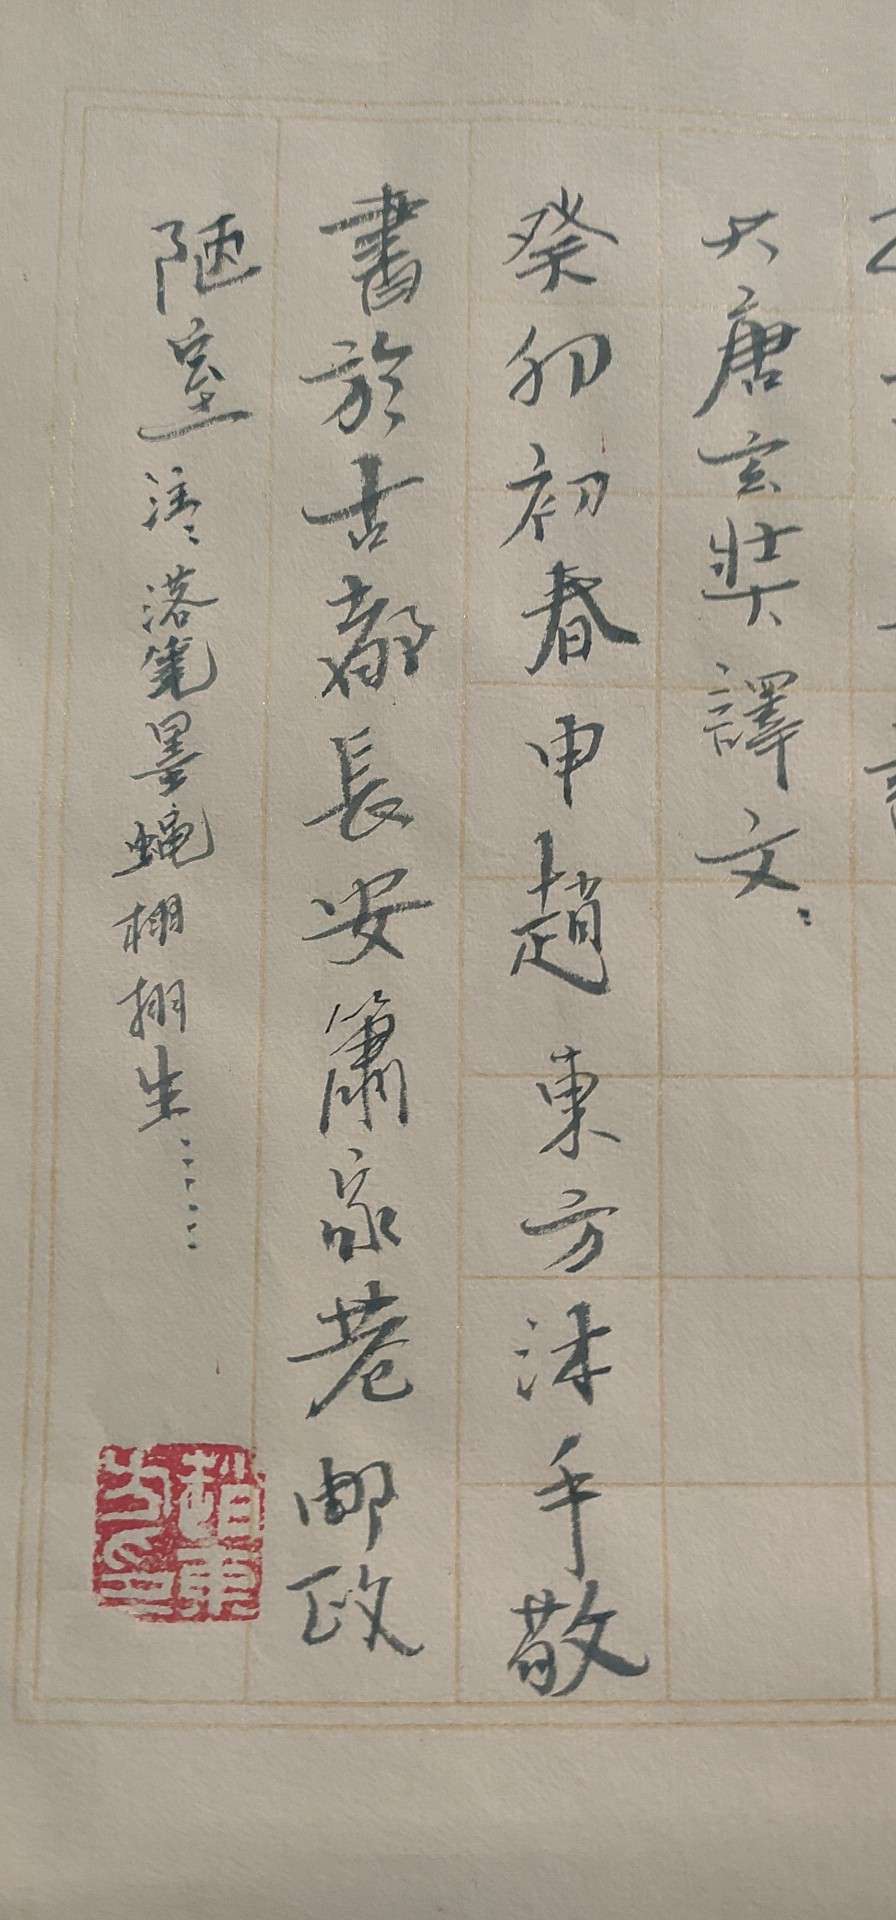 大唐玄奘譯文：
癸卯初春申趙東方沐手敬
書於古都長安簫家巷邮政
陋室注：落筆墨蝇栩栩生……
趙東方印